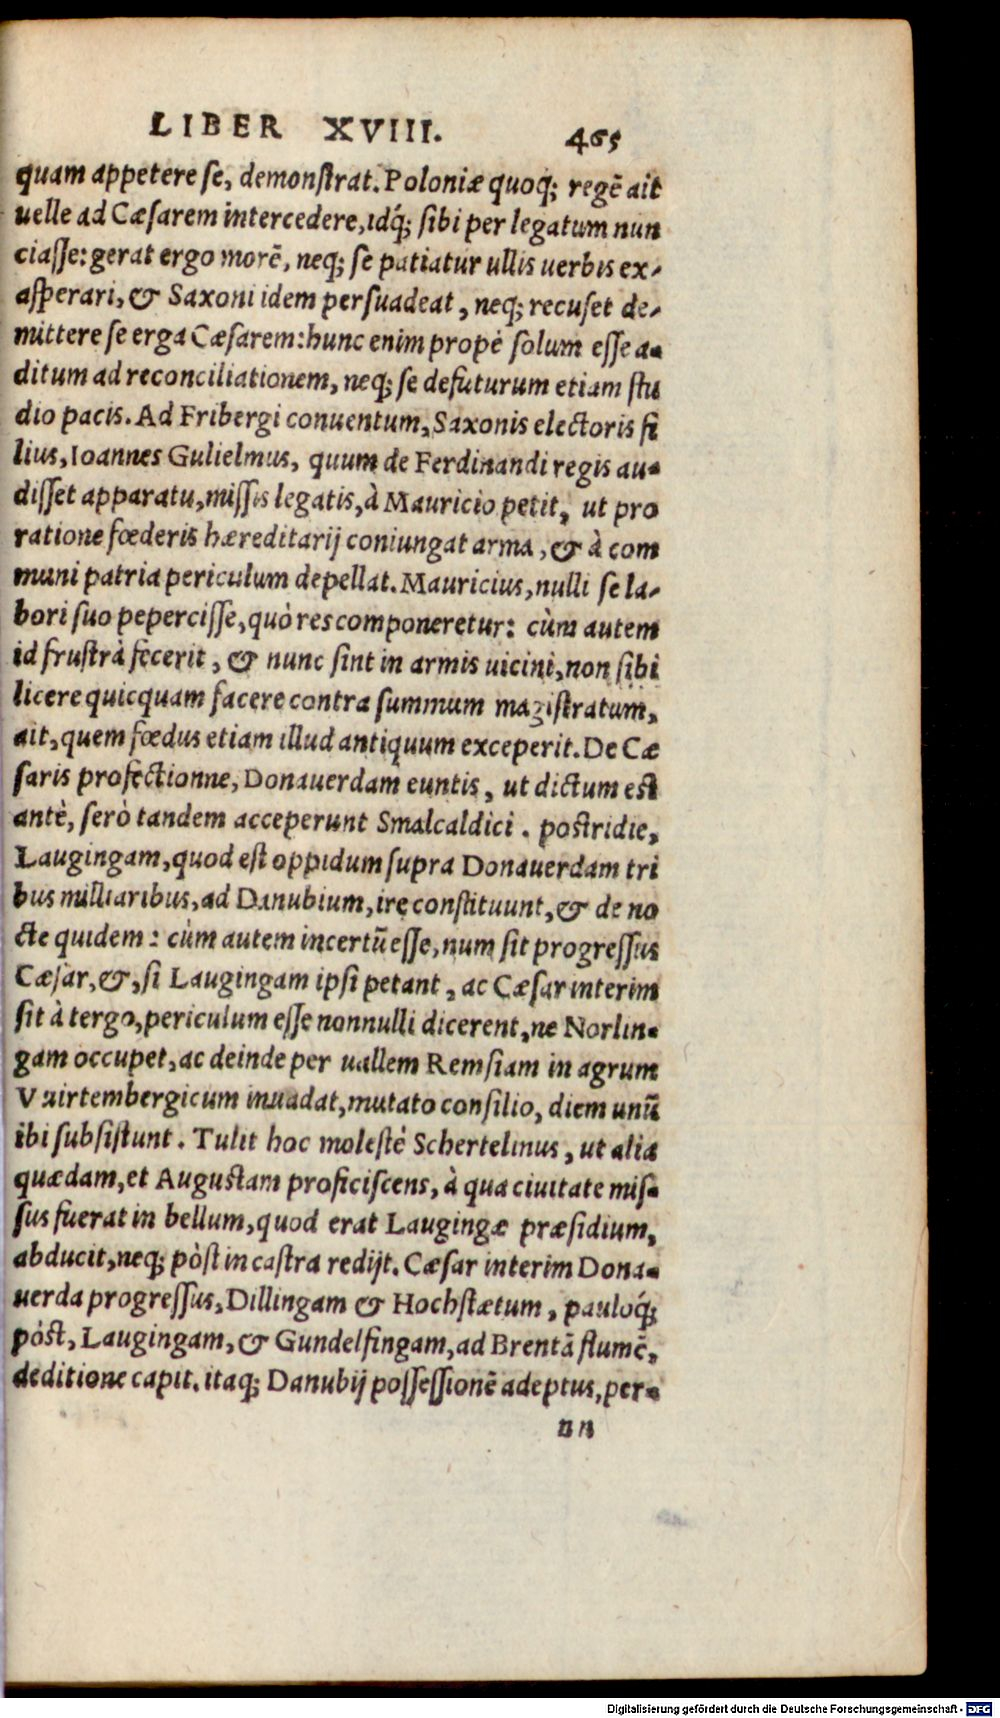 LIBER XVIII. 465
quam appetere se, demonstrat. Poloniæ quoq́; regē ait
uelle ad Cæsarem intercedere, idq́; sibi per legatum nun
ciasse: gerat ergo morē, neq; se patiatur ullis uerbis ex-
asperari, & Saxoni idem persuadeat, neq; recuset de-
mittere se erga Cæsarem: hunc enim propè solum esse a-
ditum ad reconciliationem, neq; se defuturum etiam stu
dio pacis. Ad Fribergi conuentum, Saxonis electoris fi
lius, Ioannes Gulielmus, quum de Ferdinandi regis au-
disset apparatu, missis legatis, à Mauricio petit, ut pro
ratione fœderis hæreditarij coniungat arma, & à com
muni patria periculum depellat. Mauricius, nulli se la-
bori suo pepercisse, quò res componeretur: cùm autem
id frustrà fecerit, & nunc sint in armis uicini, non sibi
licere quicquam facere contra summum magistratum,
ait, quem fœdus etiam illud antiquum exceperit. De Cæ
saris profectionne, Donauerdam euntis, ut dictum est
antè, serò tandem acceperunt Smalcaldici. postridie,
Laugingam, quod est oppidum supra Donauerdam tri
bus milliaribus, ad Danubium, ire constituunt, & de no
cte quidem: cùm autem incertū esse, num sit progressus
Cæsar, &, si Laugingam ipsi petant, ac Cæsar interim
sit à tergo, periculum esse nonnulli dicerent, ne Norlin-
gam occupet, ac deinde per uallem Remsiam in agrum
Vuirtembergicum inuadat, mutato consilio, diem unū
ibi subsistunt. Tulit hoc molestè Schertelinus, ut alia
quædam, et Augustam proficiscens, à qua ciuitate mis-
sus fuerat in bellum, quod erat Laugingæ præsidium,
abducit, neq; pòst in castra redijt. Cæsar interim Dona-
uerda progressus, Dillingam & Hochstætum, pauloq́;
pòst, Laugingam, & Gundelfingam, ad Brentā flumē,
deditione capit. itaq; Danubij possessionē adeptus, per-
nn
Digitalisierung gefördert durch die Deutsche Forschungsgemeinschaft - DFG